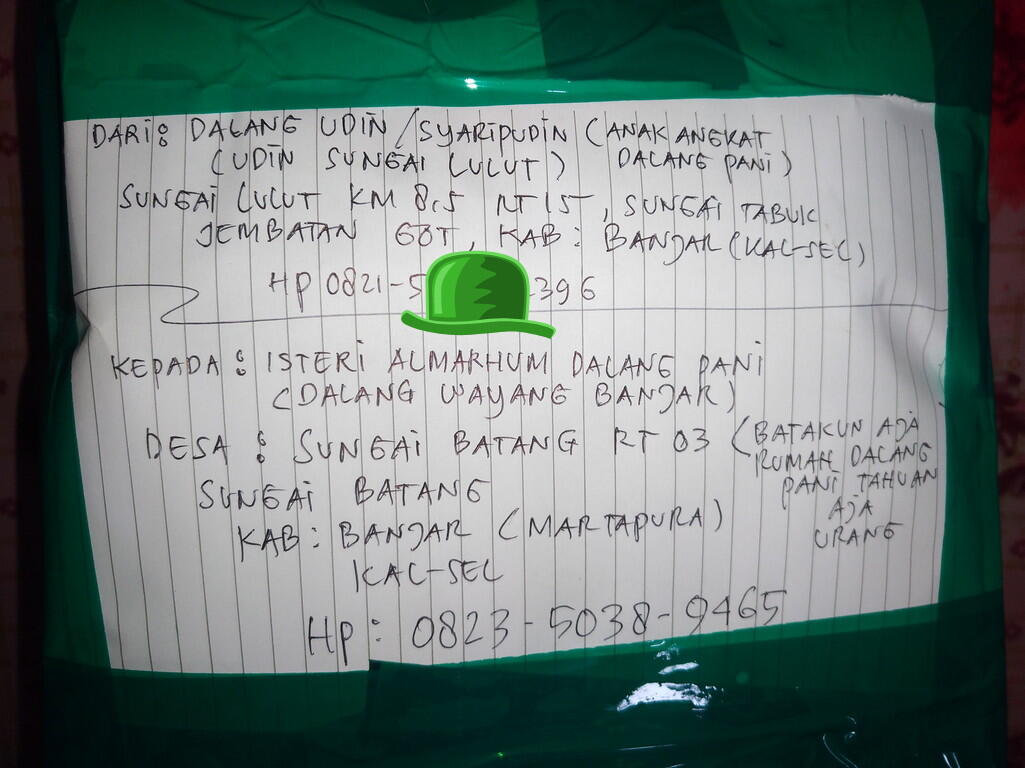 DARI : DALANG UDIN / SYARIPUDIN ( ANAK ANGKAT
( UDIN SUNGAI LULUT ) DALANG PANI )
SUNGAI LULUT KM 8.5 RT 15 , SUNGAI TABUK
JEMBATAN GOT , KAB : BANJAR ( KAL-SEL )
HP 0821-5 396
KEPADA : ISTERI ALMARHUM DALANG PANI
( DALANG WAYANG BANJAR )
DESA : SUNGAI BATANG RT 03
SUNGAI BATANG
KAB : BANJAR ( MARTAPURA )
KAL-SEL
( BATAKUN AJA
RUMAH DALANG
PANI TAHUAN
AJA
URANG
Hp : 0823 - 5038 - 9465